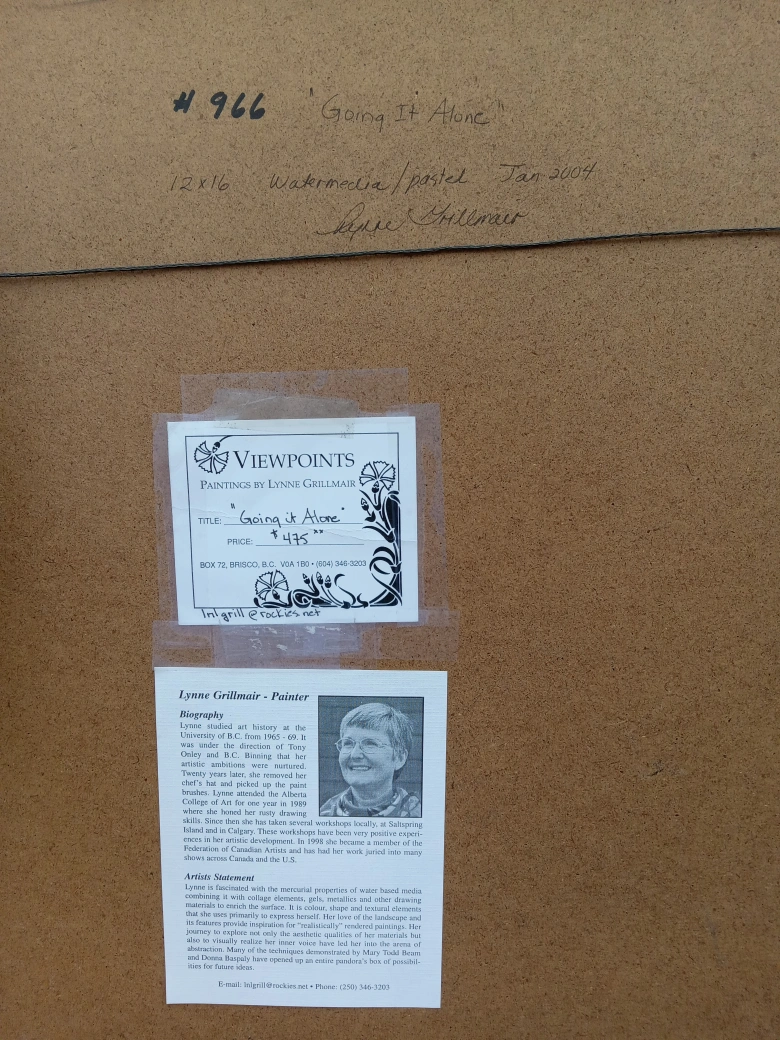 # 966 "Going It Alone"
12x16 Watermedia/pastel Jan 2004
Lynne Grillmair
VIEWPOINTS
PAINTINGS BY LYNNE GRILLMAIR
TITLE: "Going it Alone"
PRICE: $475ºº
BOX 72, BRISCO, B.C. V0A 1B0 • (604) 346-3203
lnlgrill@rockies.net
Lynne Grillmair - Painter
Biography
Lynne studied art history at the
University of B.C. from 1965 - 69. It
was under the direction of Tony
Onley and B.C. Binning that her
artistic ambitions were nurtured.
Twenty years later, she removed her
chef's hat and picked up the paint
brushes. Lynne attended the Alberta
College of Art for one year in 1989
where she honed her rusty drawing
skills. Since then she has taken several workshops locally, at Saltspring
Island and in Calgary. These workshops have been very positive experi-
ences in her artistic development. In 1998 she became a member of the
Federation of Canadian Artists and has had her work juried into many
shows across Canada and the U.S.
Artists Statement
Lynne is fascinated with the mercurial properties of water based media
combining it with collage elements, gels, metallics and other drawing
materials to enrich the surface. It is colour, shape and textural elements
that she uses primarily to express herself. Her love of the landscape and
its features provide inspiration for "realistically" rendered paintings. Her
journey to explore not only the aesthetic qualities of her materials but
also to visually realize her inner voice have led her into the arena of
abstraction. Many of the techniques demonstrated by Mary Todd Beam
and Donna Baspaly have opened up an entire pandora's box of possibil-
ities for future ideas.
E-mail: lnlgrill@rockies.net • Phone: (250) 346-3203